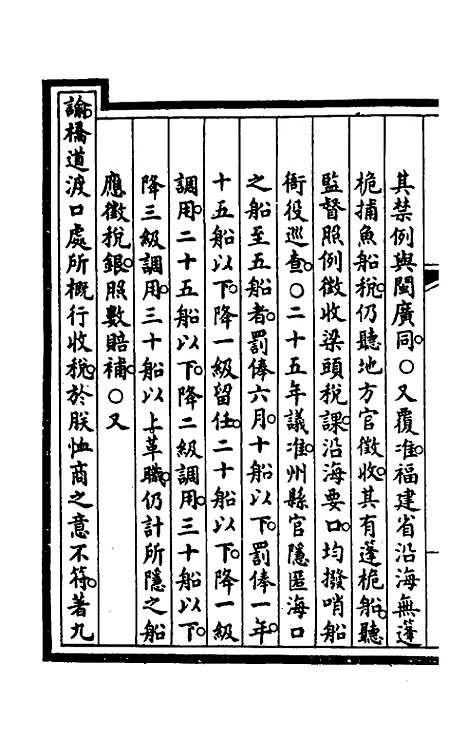 其禁例與閩廣同○又覆准福建省沿海無蓬
桅捕魚船稅仍聽地方官徵收其有蓬桅船聽
監督照例徵收梁頭稅課沿海要口均撥哨船
衙役巡查○二十五年議准州縣官隱匿海口
之船至五船者罰俸六月十船以下罰俸一年
十五船以下降一級留任二十船以下降一級
調用二十五船以下降二級調用三十船以下
降三級調用三十船以上革職仍計所隱之船
應徵稅銀照數賠補○又
諭橋道渡口處所概行收稅於朕恤商之意不符著九